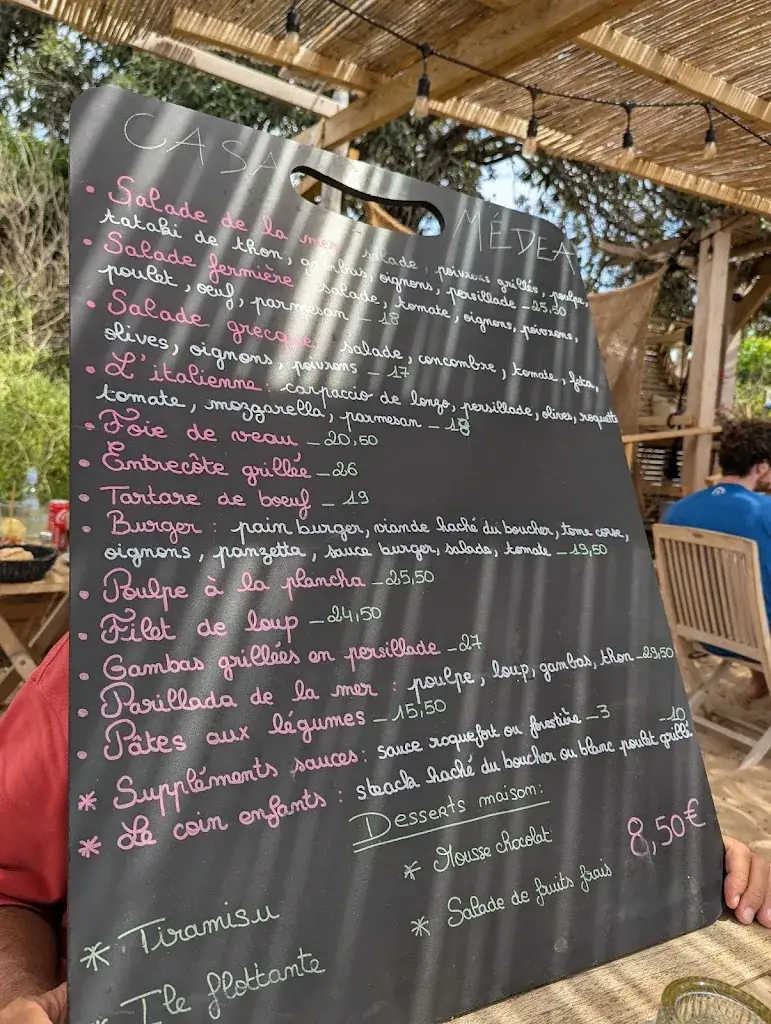 CASA MÉDEA
• Salade de la mer salade, poivrons grillés, poulpe,
tataki de thon, gambas, oignons, persillade - 25,50
• Salade fermière salade, tomate, oignons, poivrons,
poulet, oeuf, parmesan - 18
• Salade grecque: salade, concombre, tomate, feta,
olives, oignons, poivrons - 17
• L'italienne: carpaccio de longo, persillade, olives, roquette
tomate, mozzarella, parmesan - 18
• Foie de veau - 20,50
• Entrecôte grillée - 26
• Tartare de boeuf - 19
• Burger: pain burger, viande haché du boucher, tome corse,
oignons, panzetta, sauce burger, salade, tomate - 19,50
• Poulpe à la plancha - 25,50
• Filet de loup - 24,50
• Gambas grillées en persillade - 27
• Parillada de la mer: poulpe, loup, gambas, thon - 29,50
• Pâtes aux légumes - 15,50
* Suppléments sauces: sauce roquefort ou forestière - 3
* Le coin enfants: steack haché du boucher ou blanc poulet grillé - 10
Desserts maison:
* Mousse chocolat 8,50€
* Salade de fruits frais
* Tiramisu
* Ile flottante